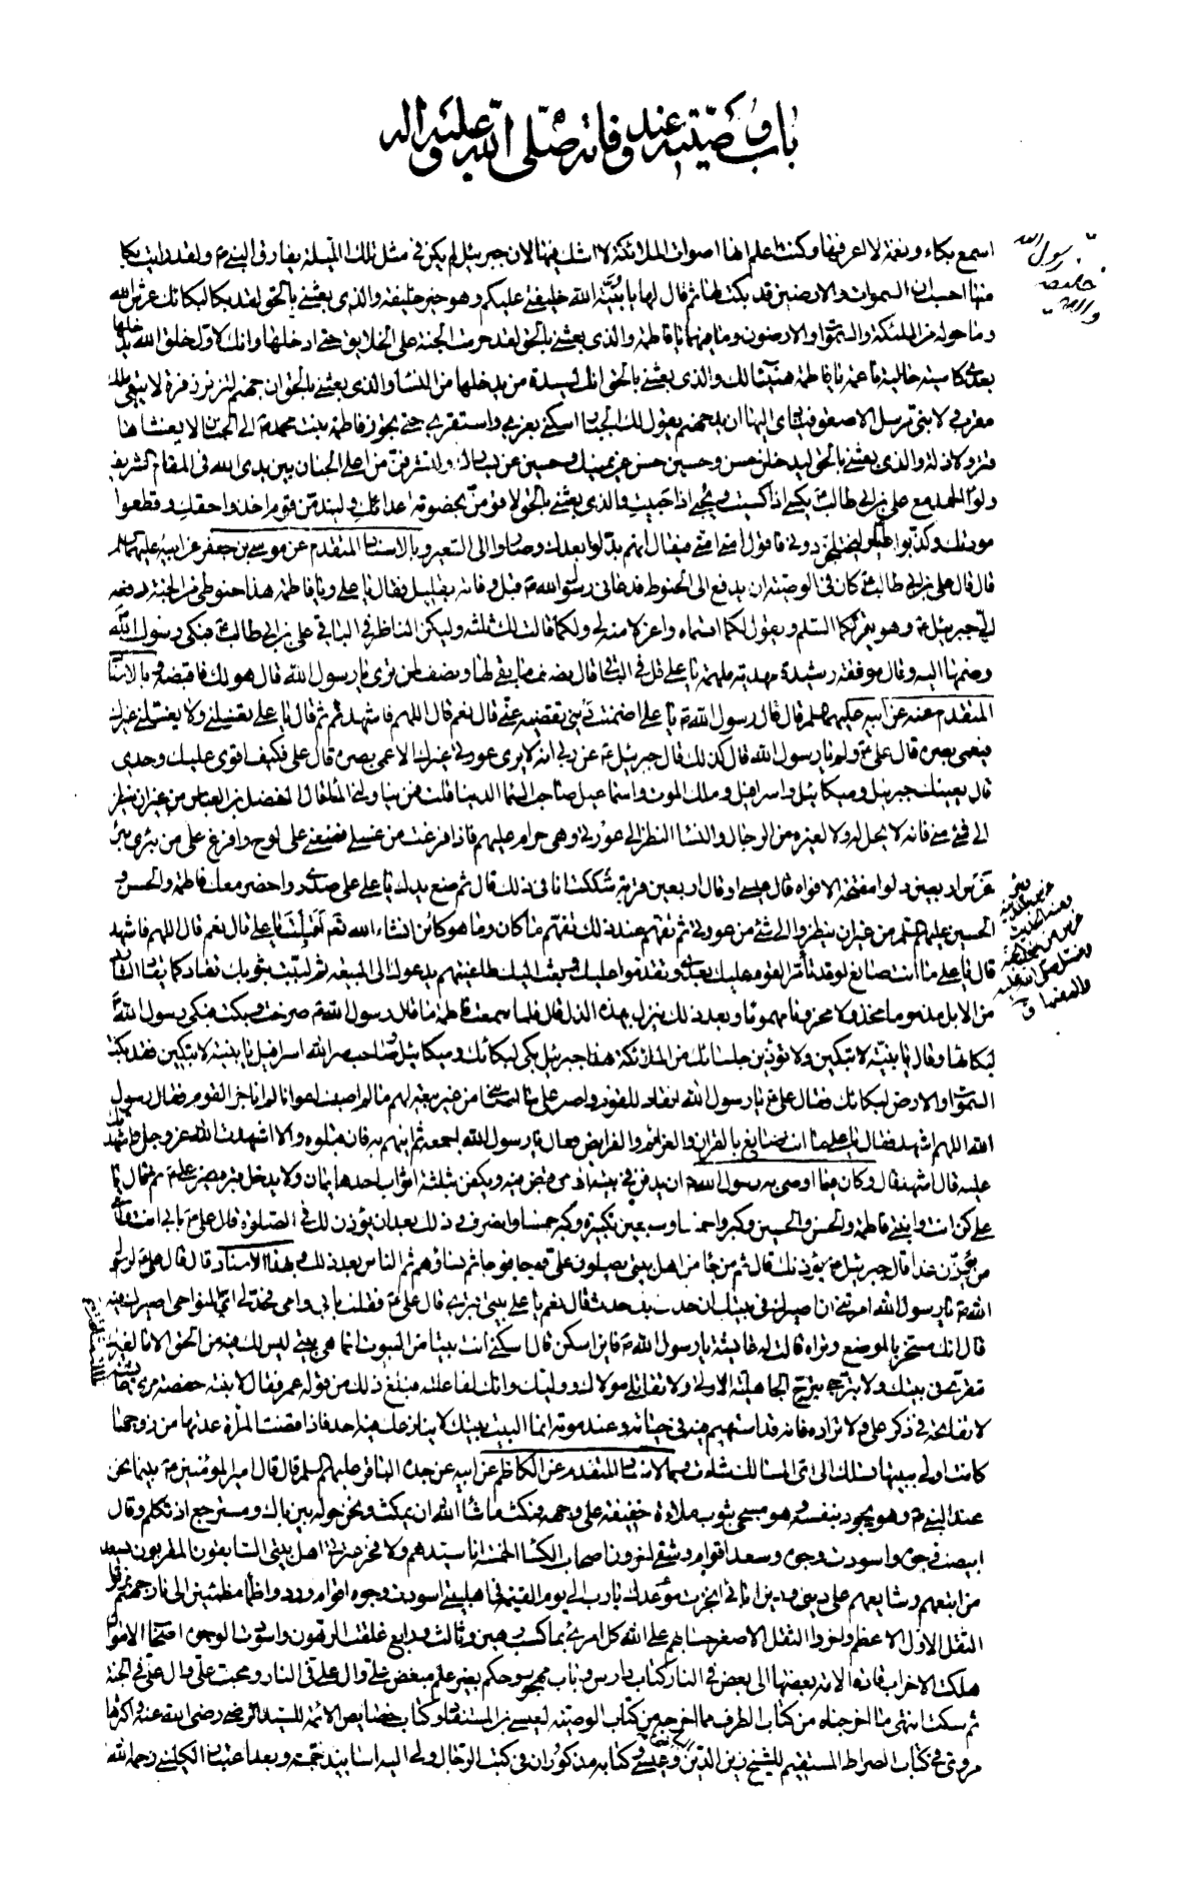 باب وصيته عند وفاته صلى الله عليه واله
اسمع بكاء ونغمة لا اعرفها وكنت اعلم انها اصوات الملائكة لا اشك فيها الا ان جبرئيل لم يكن في مثل تلك الليلة يفارق النبي ص ولقد رايت بكا
منها احسب ان السموات والارضين قد بكت لها ثم قال لها يا بنية الله خليفتي عليكم وهو خير خليفة والذي بعثني بالحق لقد بكا لبكائك عرش الله
وما حوله من الملئكة والسموات والارضون وما بينهما يا فاطمة والذي بعثني بالحق لقد حرمت الجنة على الخلايق حتى ادخلها وانك لاول خلق الله يدخلها
بعدي كاسية حالية ناعمة يا فاطمة هنيئا لك والذي بعثني بالحق انك لسيدة من يدخلها من النساء والذي بعثني بالحق ان جهنم لتزفر زفرة لا يبقى ملك
مقرب ولا نبي مرسل الا صعق فينادى اليها ان يا جهنم يقول لك الجبار اسكني بعزي واستقري حتى تجوز فاطمة بنت محمد ص الى الجنان لا يغشاها
قتر ولا ذلة والذي بعثني بالحق ليدخلن حسن وحسين حسن عن يمينك وحسين عن يسارك ولتشرفن من اعلى الجنان بين يدي الله في المقام الشريف
ولواء الحمد مع علي بن ابي طالب ع يكسى اذا كسيت ويحبى اذا حبيت والذي بعثني بالحق لاقومن بخصومة اعدائك وليندمن قوم اخذوا حقك وقطعوا
مودتك وكذبوا علي وليختلجن دوني فاقول امتي امتي فيقال انهم بدلوا بعدك وصاروا الى السعير وبالاسناد المتقدم عن موسى بن جعفر عن ابيه عليهما السلم
قال قال علي بن ابي طالب ع كان في الوصية ان يدفع الى الحنوط فدعاني رسول الله ص قبل وفاته بقليل فقال يا علي ويا فاطمة هذا حنوطي من الجنة دفعه
الي جبرئيل ع وهو يقرئكما السلم ويقول لكما اقسماه واعزلا منه لي ولكما قالت لك ثلثه وليكن الناظر في الباقي علي بن ابي طالب ع فبكى رسول الله
وضمها اليه وقال موفقة رشيدة مهدية ملهمة يا علي قل في الباقي قال نصف ما بقي لها ونصف لمن ترى يا رسول الله قال هو لك فاقبضه وبالاسناد
المتقدم عنه عن ابيه عليهما السلم قال قال رسول الله ص يا علي اضمنت ديني تقضيه عني قال نعم قال اللهم فاشهد ثم قال يا علي تغسلني ولا يغسلني غيرك
فيعمى بصره قال علي ع ولم يا رسول الله قال كذلك قال جبرئيل ع عن ربي انه لا يرى عورتي غيرك الا عمي بصره قال علي فكيف اقوى عليك وحدي
قال يعينك جبرئيل وميكائيل واسرافيل وملك الموت واسماعيل صاحب السماء الدنيا قلت فمن يناولني الماء قال الفضل بن العباس من غير ان ينظر
الى شيء مني فانه لا يحل له ولا لغيره من الرجال والنساء النظر الى عورتي وهي حرام عليهم فاذا فرغت من غسلي فضعني على لوح وافرغ علي من بئري بئر
غرس اربعين دلوا مفتحة الافواه قال عيسى او قال اربعين قربة شككت انا في ذلك قال ثم ضع يدك يا علي على صدري واحضر معك فاطمة والحسن و
الحسين عليهم السلم من غير ان ينظروا الى شيء من عورتي ثم تفهم عند ذلك تفهم ما كان وما هو كائن انشاء الله تعم اقبلت يا علي قال نعم قال اللهم فاشهد
قال يا علي ما انت صانع لو قد تامر القوم عليك بعدي وتقدموا عليك وبعث اليك طاغيتهم يدعوك الى البيعة ثم لببت بثوبك تقاد كما يقاد الشارد
من الابل مذموما مخذولا محزونا مهموما وبعد ذلك ينزل بهذه الذل قال فلما سمعت فاطمة ما قال رسول الله ص صرخت وبكت فبكى رسول الله ص
لبكائها وقال يا بنية لا تبكين ولا تؤذين جلساءك من الملائكة هذا جبرئيل بكى لبكائك وميكائيل وصاحب سر الله اسرافيل يا بنية لا تبكين فقد بكت
السموات والارض لبكائك فقال علي ع يا رسول الله انقاد للقوم واصبر على ما اصابني من غير بيعة لهم ما لم اصب اعوانا لم اناجز القوم فقال رسول
الله اللهم اشهد فقال يا علي ما انت صانع بالقران والعزائم والفرايض فقال يا رسول الله اجمعه ثم اتيهم به فان قبلوه والا اشهدت الله عز وجل واشهدتك
عليه قال اشهد قال وكان فيما اوصى به رسول الله ص ان يدفن في بيته الذي قبض فيه ويكفن بثلثة اثواب احدها يمان ولا يدخل قبره غير علي ع ثم قال يا
علي كن انت وابنتي فاطمة والحسن والحسين وكبروا خمسا وسبعين تكبيرة وكبر خمسا وانصرف وذلك بعد ان يؤذن لك في الصلوة قال علي ع بابي انت وامي
من يؤذن غدا قال جبرئيل ع يؤذنك قال ثم من جاء من اهل بيتي يصلون علي فوجا فوجا ثم نساؤهم ثم الناس بعد ذلك وبهذا الاسناد قال قال علي ع لرسول
الله ص يا رسول الله امرتني ان اصيرك في بيتك ان حدث بك حدث قال نعم يا علي بيتي قبري قال علي ع فقلت بابي وامي فحد لي اي النواحي اصيرك فيه
قال انك مسخر بالموضع وتراه قالت له عائشة يا رسول الله ص فاين اسكن قال اسكني انت بيتا من البيوت انما هي بيتي ليس لك فيه من الحق الا ما لغيرك
فقري في بيتك ولا تبرجي تبرج الجاهلية الاولى ولا تقاتلي مولاك ووليك وانك لفاعلته فبلغ ذلك من قوله عمر فقال لابنته حفصة مري عائشة
لا تفاتحه في ذكر علي ولا تراده فانه قد استهيم فيه في حياته وعند موته انما البيت بيتك لا ينازعك فيه احد فاذا قضت المراة عدتها من زوجها
كانت اولى ببيتها تسلك الى اي المسالك شاءت وبالاسناد المتقدم عن الكاظم عن ابيه عن جده الباقر عليهم السلم قال قال امير المؤمنين ع بينما نحن
عند النبي ص وهو يجود بنفسه وهو مسجى بثوب ملاءة خفيفة على وجهه فمكث ما شاء الله ان يمكث ونحن حوله بين باك ومسترجع اذ تكلم وقال
ابيضت وجوه واسودت وجوه وسعد اقوام وشقي اخرون اصحاب الكساء الخمسة انا سيدهم ولا فخر عترتي اهل بيتي السابقون المقربون يسعد
من اتبعهم وشايعهم على ديني ودين ابائي انجزت موعدك يا رب الى يوم القيمة في اهل بيتي اسودت وجوه اقوام وردوا ظماء مظمئين الى نار جهنم مزقوا
الثقل الاول الاعظم واخروا الثقل الاصغر حسابهم على الله كل امرئ بما كسب رهين وثالث ورابع غلقت الرهون واسودت الوجوه اصحاب الاموال
هلكت الاحزاب قادة الامة بعضها الى بعض في النار كتاب دارس وباب مهجور وحكم بغير علم مبغض علي وال علي في النار ومحب علي وال علي في الجنة
ثم سكت انتهى ما اخرجناه من كتاب الطرف مما اخرجه من كتاب الوصية لعيسى بن المستفاد وكتاب خصايص الائمة للسيد الرضي رضي الله عنه واكثرها
مروي في كتاب الصراط المستقيم للشيخ زين الدين وعيسى وكتابه مذكوران في كتب الرجال ولي اليه اسانيد جمة وبعد اعتبار الكليني رحمه الله
رسول الله